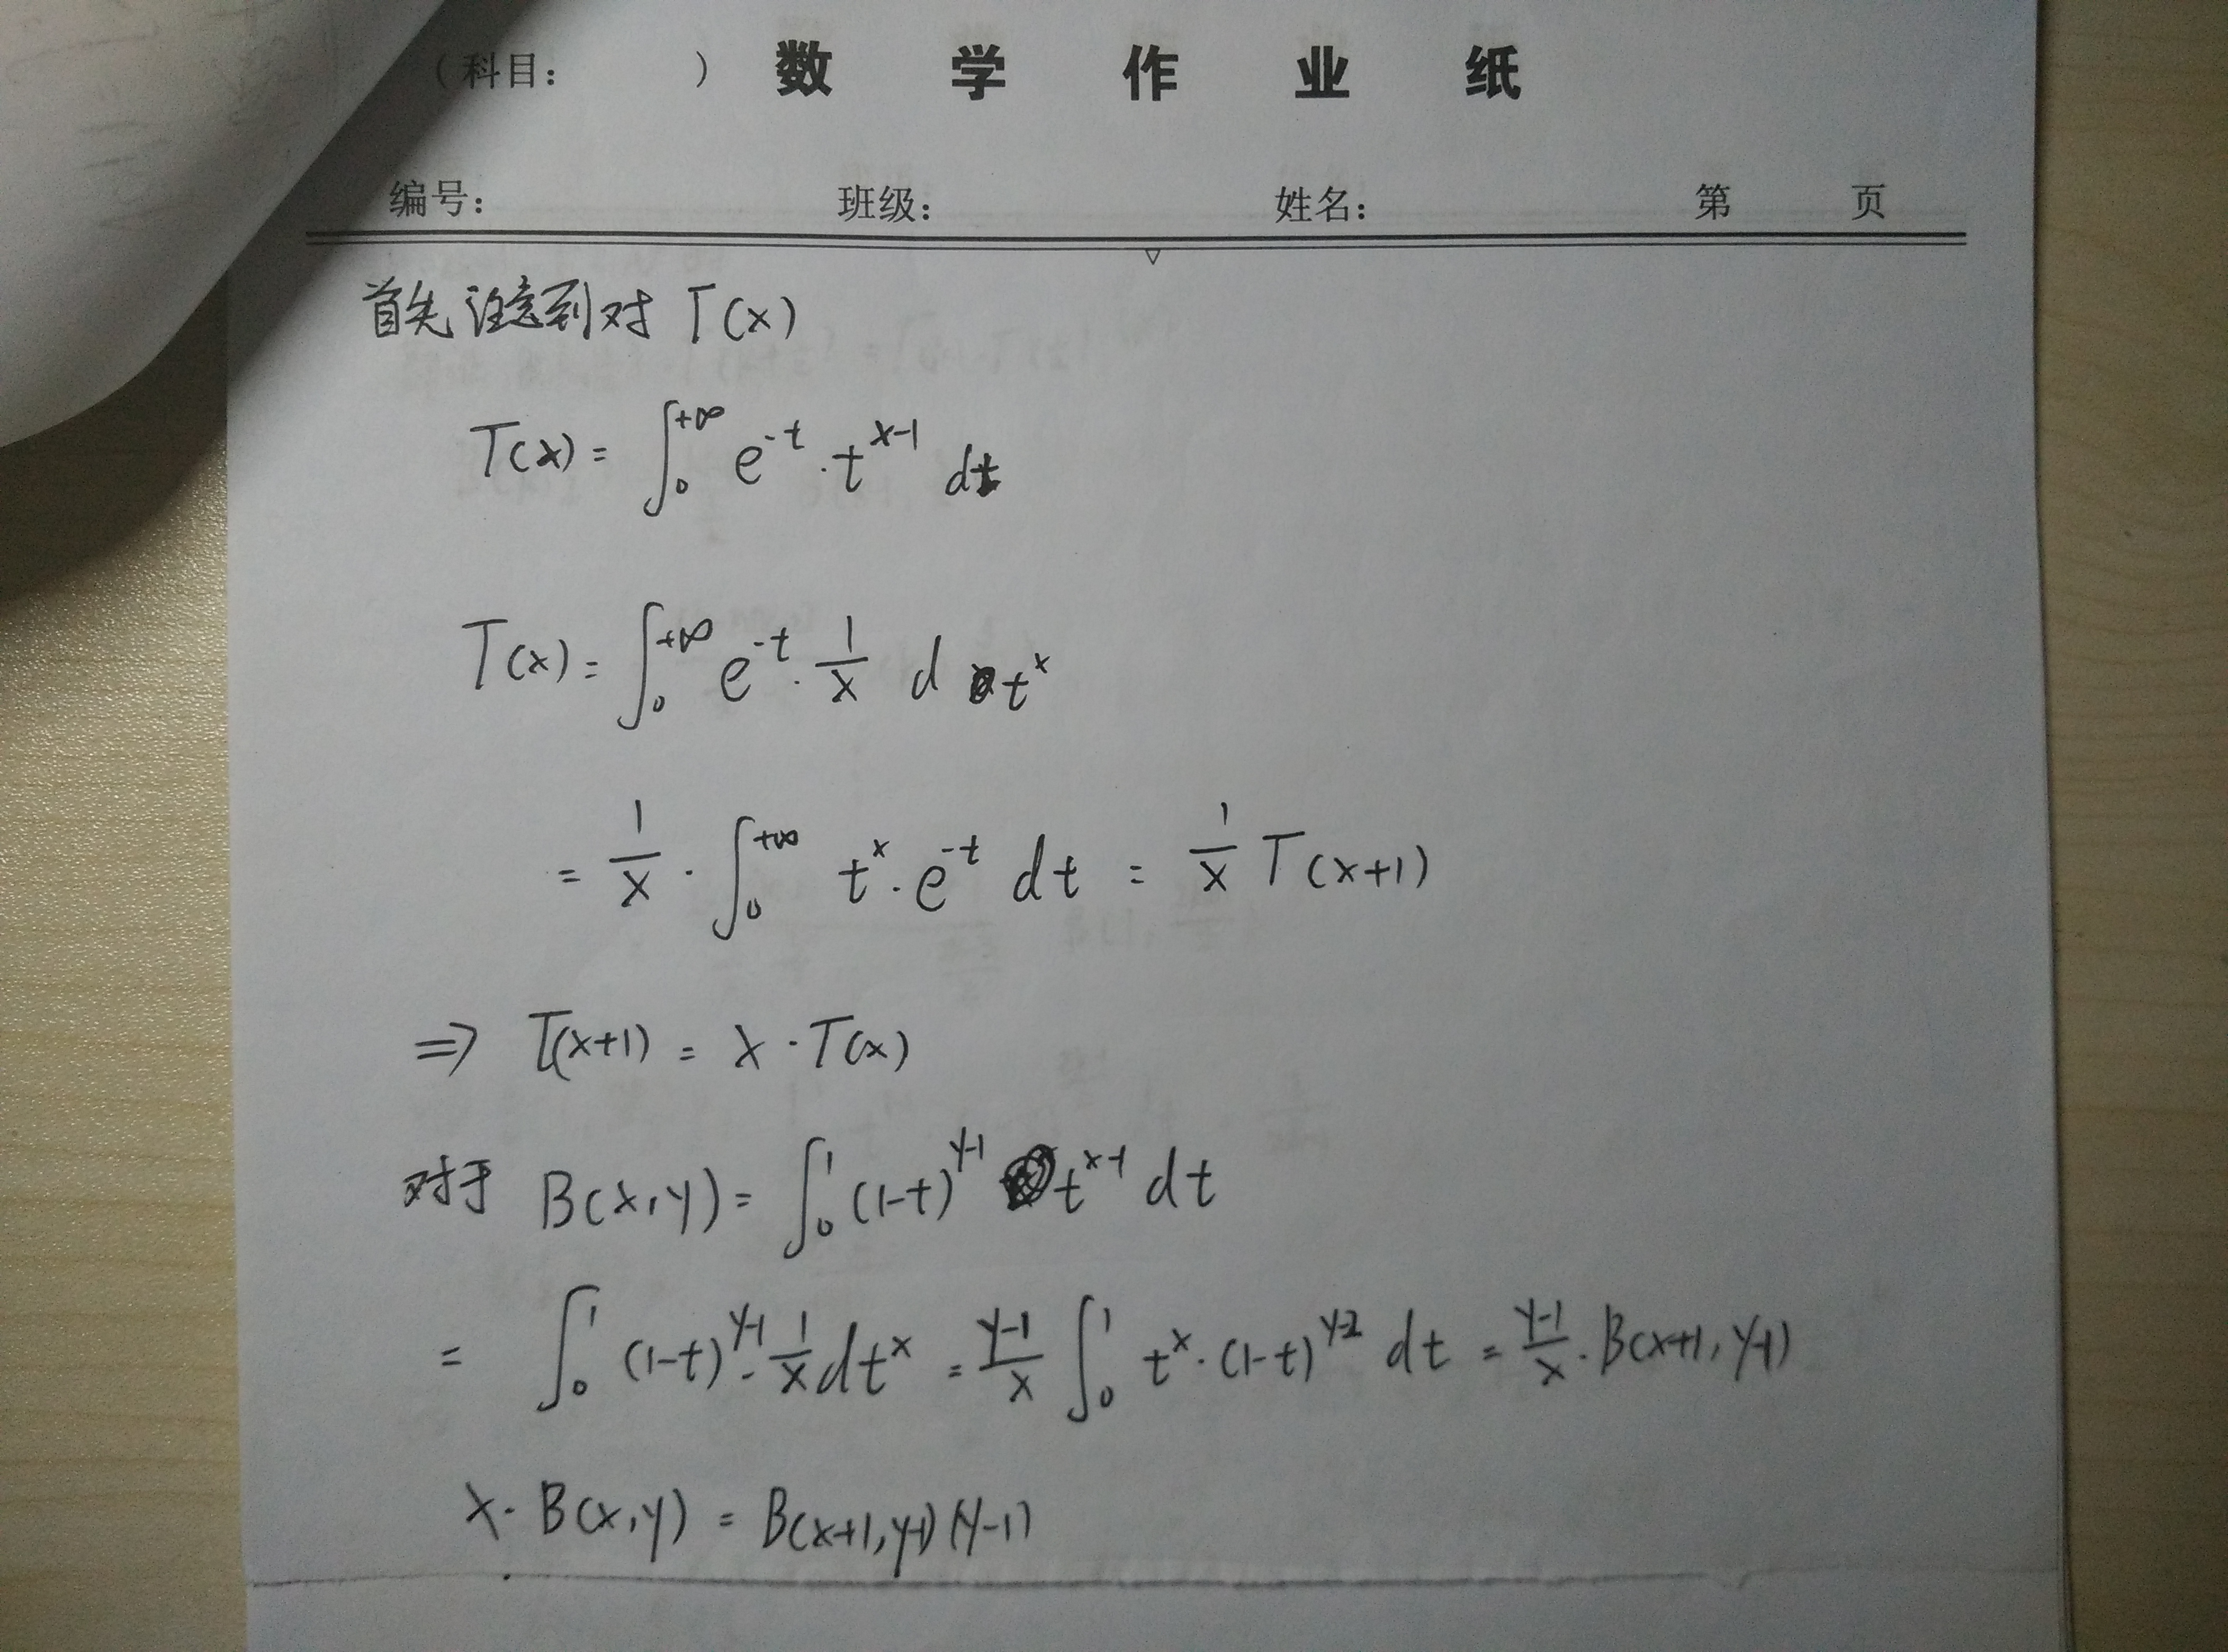 (科目: ) 数 学 作 业 纸
编号: 班级: 姓名: 第 页
首先注意到对 Γ(x)
Γ(x) = ∫₀^{+∞} e^{-t} · t^{x-1} dt
Γ(x) = ∫₀^{+∞} e^{-t} · \frac{1}{x} d t^x
= \frac{1}{x} · ∫₀^{+∞} t^x · e^{-t} dt = \frac{1}{x} Γ(x+1)
⇒ Γ(x+1) = x · Γ(x)
对于 B(x,y) = ∫₀^1 (1-t)^{y-1} t^{x-1} dt
= ∫₀^1 (1-t)^{y-1} · \frac{1}{x} dt^x = \frac{y-1}{x} ∫₀^1 t^x · (1-t)^{y-2} dt = \frac{y-1}{x} · B(x+1, y-1)
x · B(x,y) = B(x+1,y-1)(y-1)